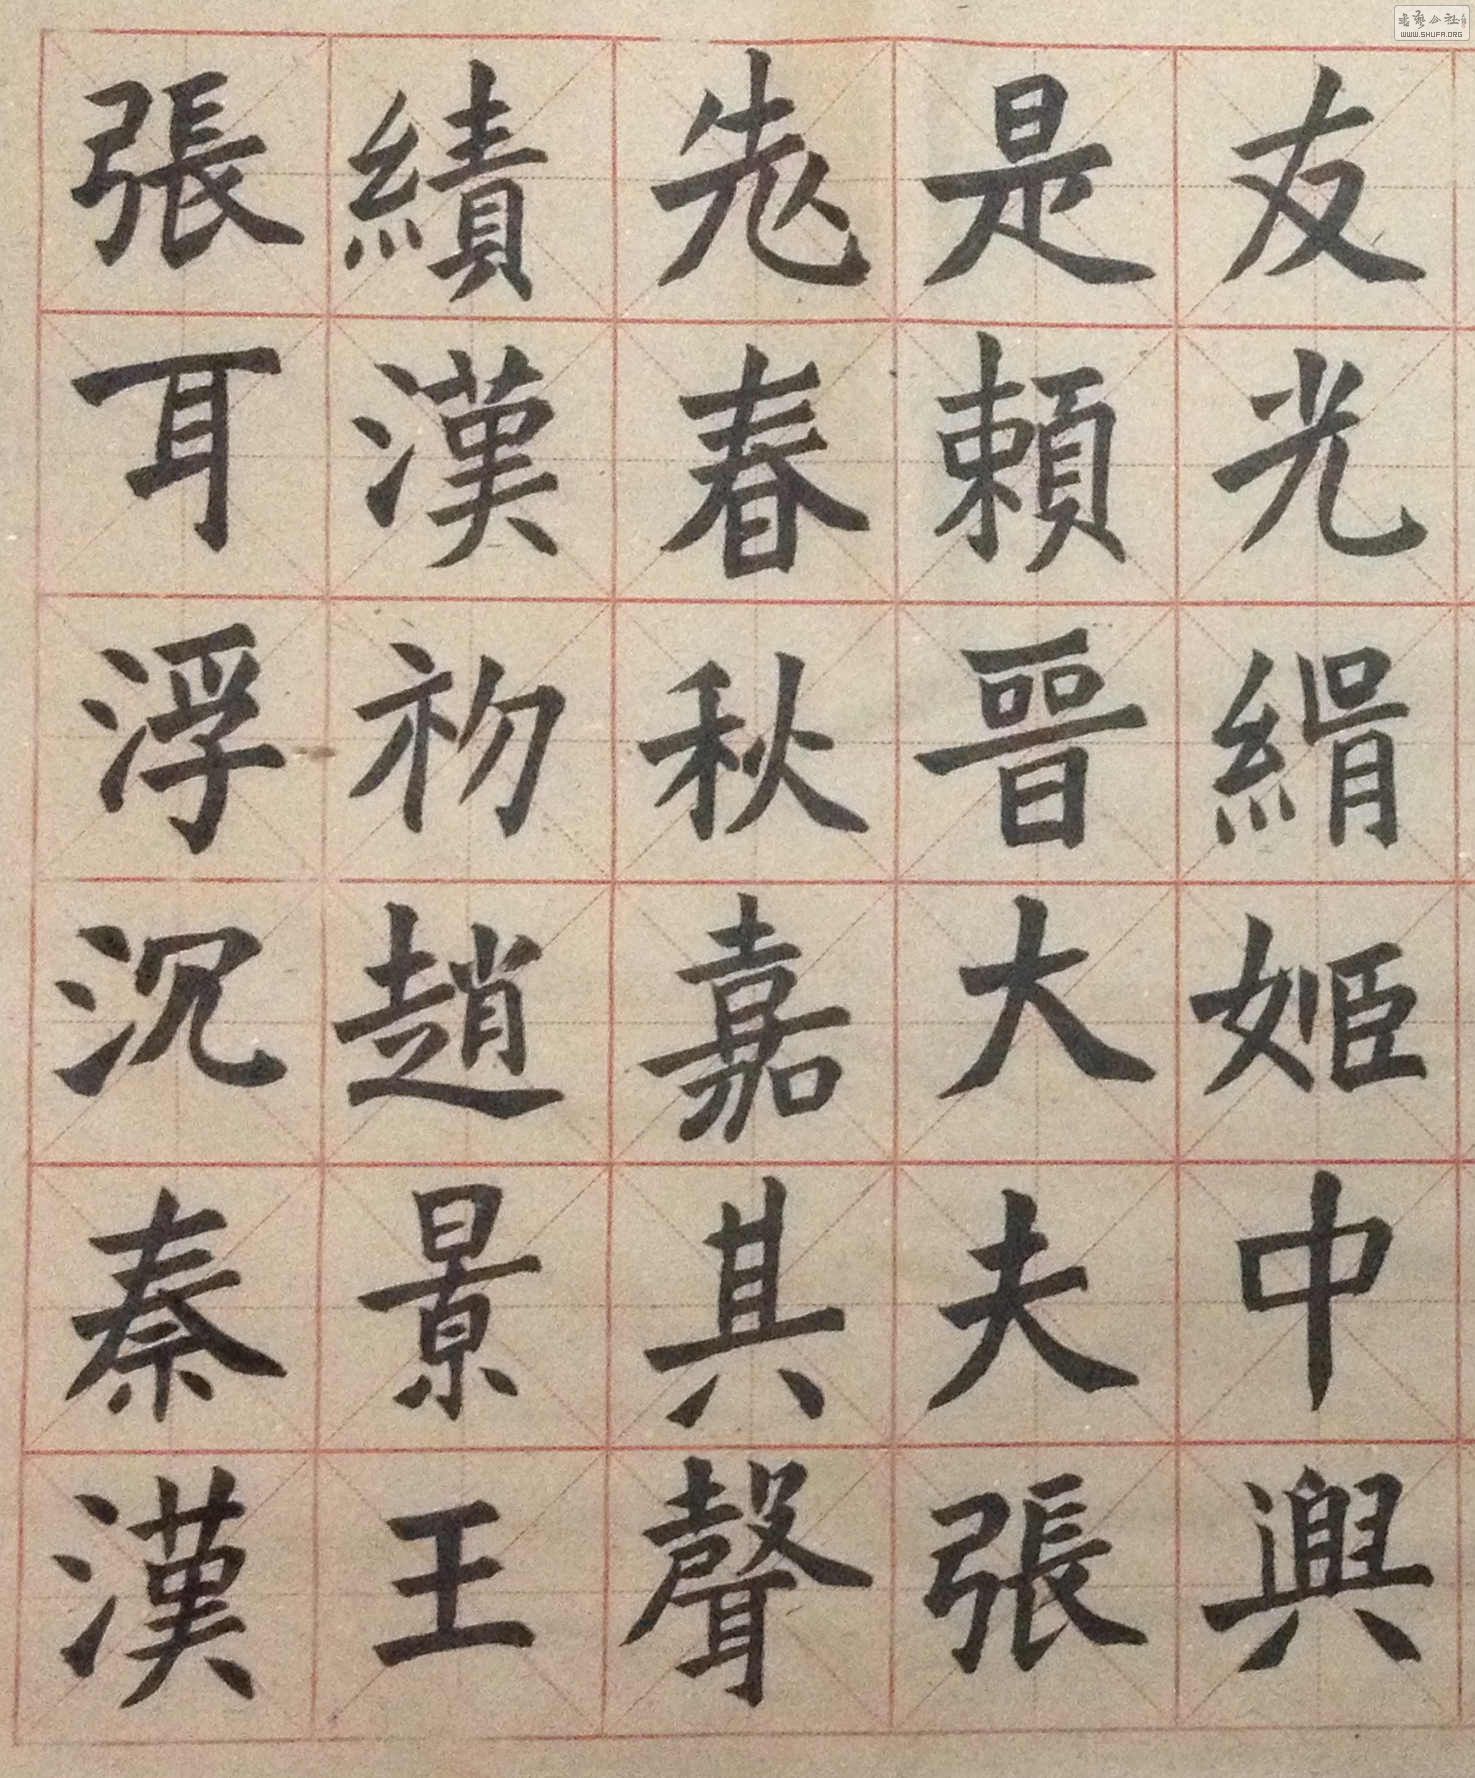 友光緝姬中興
是賴晉大夫張
老春秋嘉其聲
績漢初趙景王
張耳浮沉秦漢
WWW.SHUFA.ORG